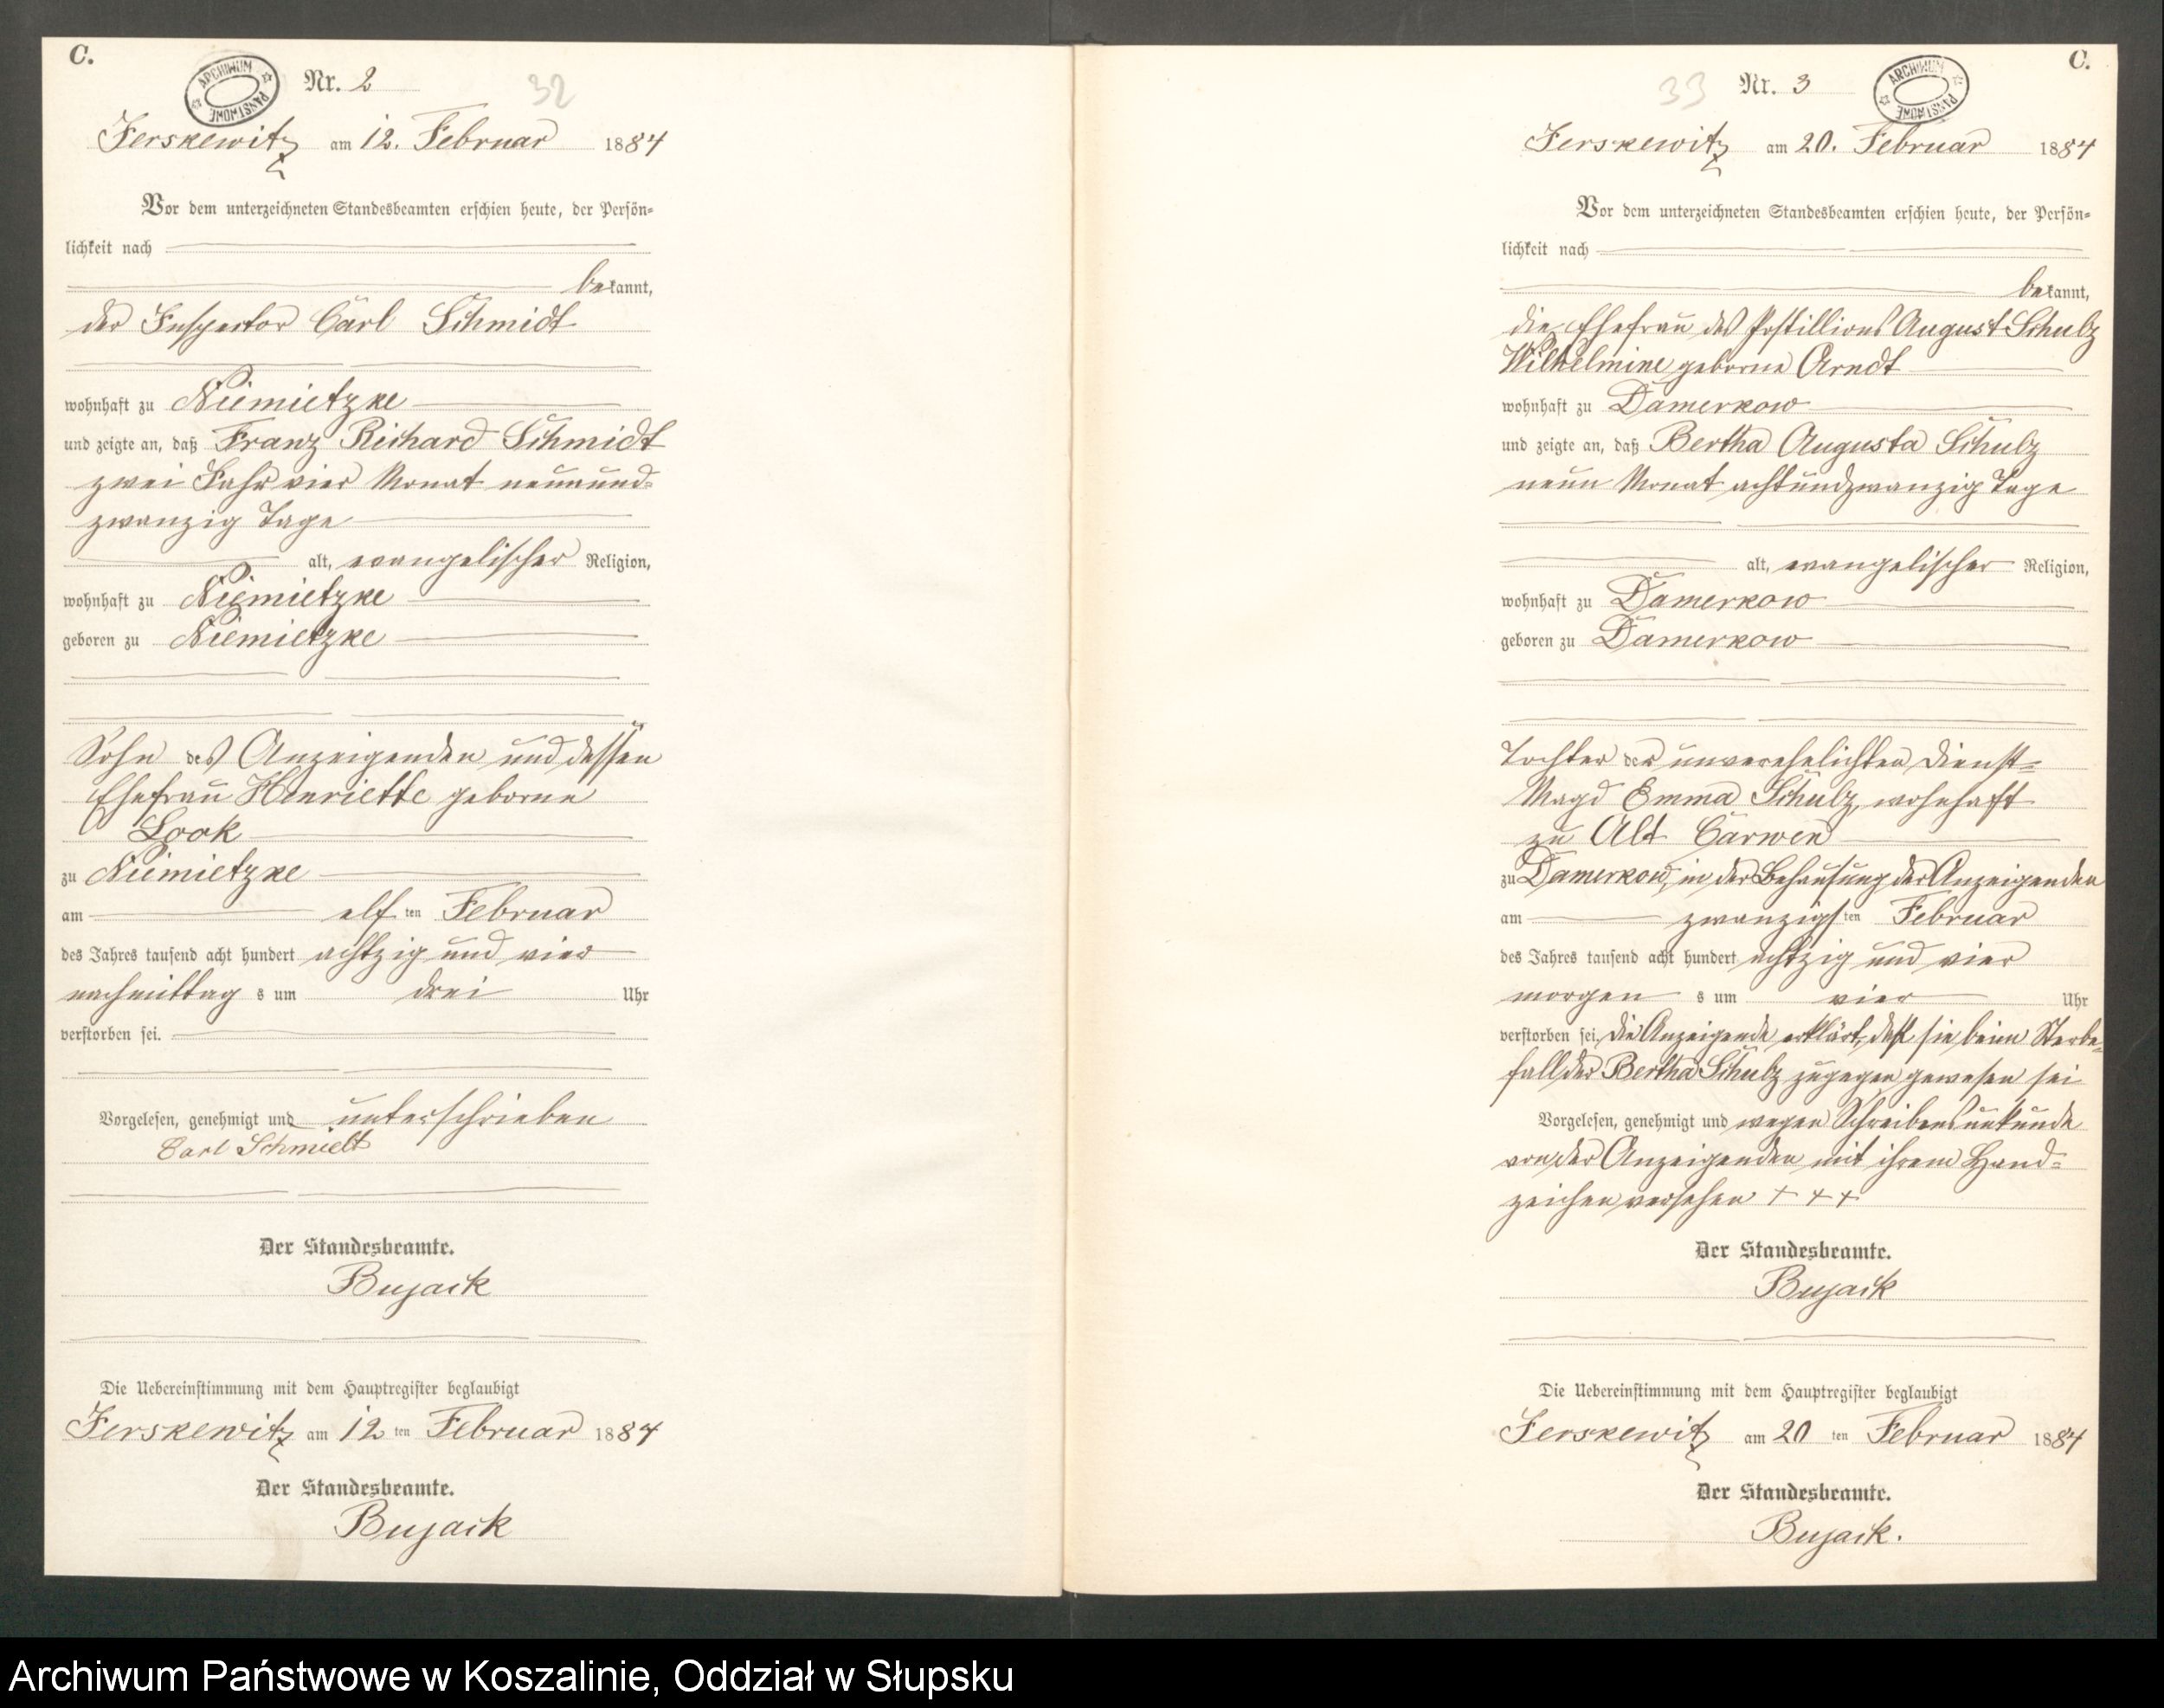 C.
ARCHIWUM PAŃSTWOWE
Nr. 2
32
Jerskewitz am 12. Februar 1884
Vor dem unterzeichneten Standesbeamten erschien heute, der Persön-
lichkeit nach
bekannt,
der Inspector Carl Schmidt
wohnhaft zu Niemietzke
und zeigte an, daß Franz Richard Schmidt
zwei Jahr vier Monat neunund-
zwanzig Tage
alt, evangelischer Religion,
wohnhaft zu Niemietzke
geboren zu Niemietzke
Sohn des Anzeigenden und dessen
Ehefrau Henriette geborne
Look
zu Niemietzke
am elf ten Februar
des Jahres tausend acht hundert achtzig und vier
nachmittag s um drei Uhr
verstorben sei.
Vorgelesen, genehmigt und unterschrieben
Carl Schmidt
Der Standesbeamte.
Bujack
Die Uebereinstimmung mit dem Hauptregister beglaubigt
Jerskewitz am 12 ten Februar 1884
Der Standesbeamte.
Bujack
C.
33
Nr. 3
ARCHIWUM PAŃSTWOWE
Jerskewitz am 20. Februar 1884
Vor dem unterzeichneten Standesbeamten erschien heute, der Persön-
lichkeit nach
bekannt,
die Ehefrau des Postillions August Schulz
Wilhelmine geborne Arndt
wohnhaft zu Damerkow
und zeigte an, daß Bertha Augusta Schulz
neun Monat achtundzwanzig Tage
alt, evangelischer Religion,
wohnhaft zu Damerkow
geboren zu Damerkow
Tochter der unverehelichten Dienst-
Magd Emma Schulz, wohnhaft
zu Alt Carwen
zu Damerkow, in der Behausung der Anzeigenden
am zwanzigs ten Februar
des Jahres tausend acht hundert achtzig und vier
morgen s um vier Uhr
verstorben sei, die Anzeigende erklärt, daß sie beim Sterbe-
fall der Bertha Schulz zugegen gewesen sei
Vorgelesen, genehmigt und wegen Schreibensunkunde
von der Anzeigenden mit ihrem Hand-
zeichen versehen + + +
Der Standesbeamte.
Bujack
Die Uebereinstimmung mit dem Hauptregister beglaubigt
Jerskewitz am 20 ten Februar 1884
Der Standesbeamte.
Bujack.
Archiwum Państwowe w Koszalinie, Oddział w Słupsku